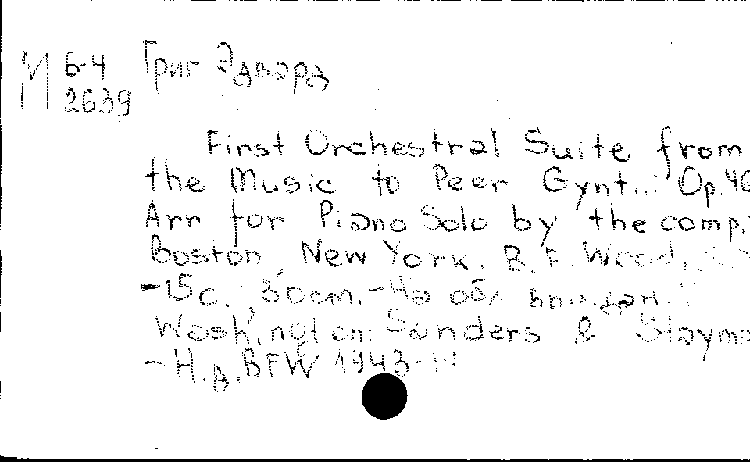 М 6-4 Григ Эдвард
2639
First Orchestral Suite from
the Music to Peer Gynt... Op.46
Arr for Piano Solo by the comp.
Boston, New York. B. F. Wood,
-15 с., 30 cm. - На об.
Washington: Sanders & Stayma
- Н. д. BFW 1943-